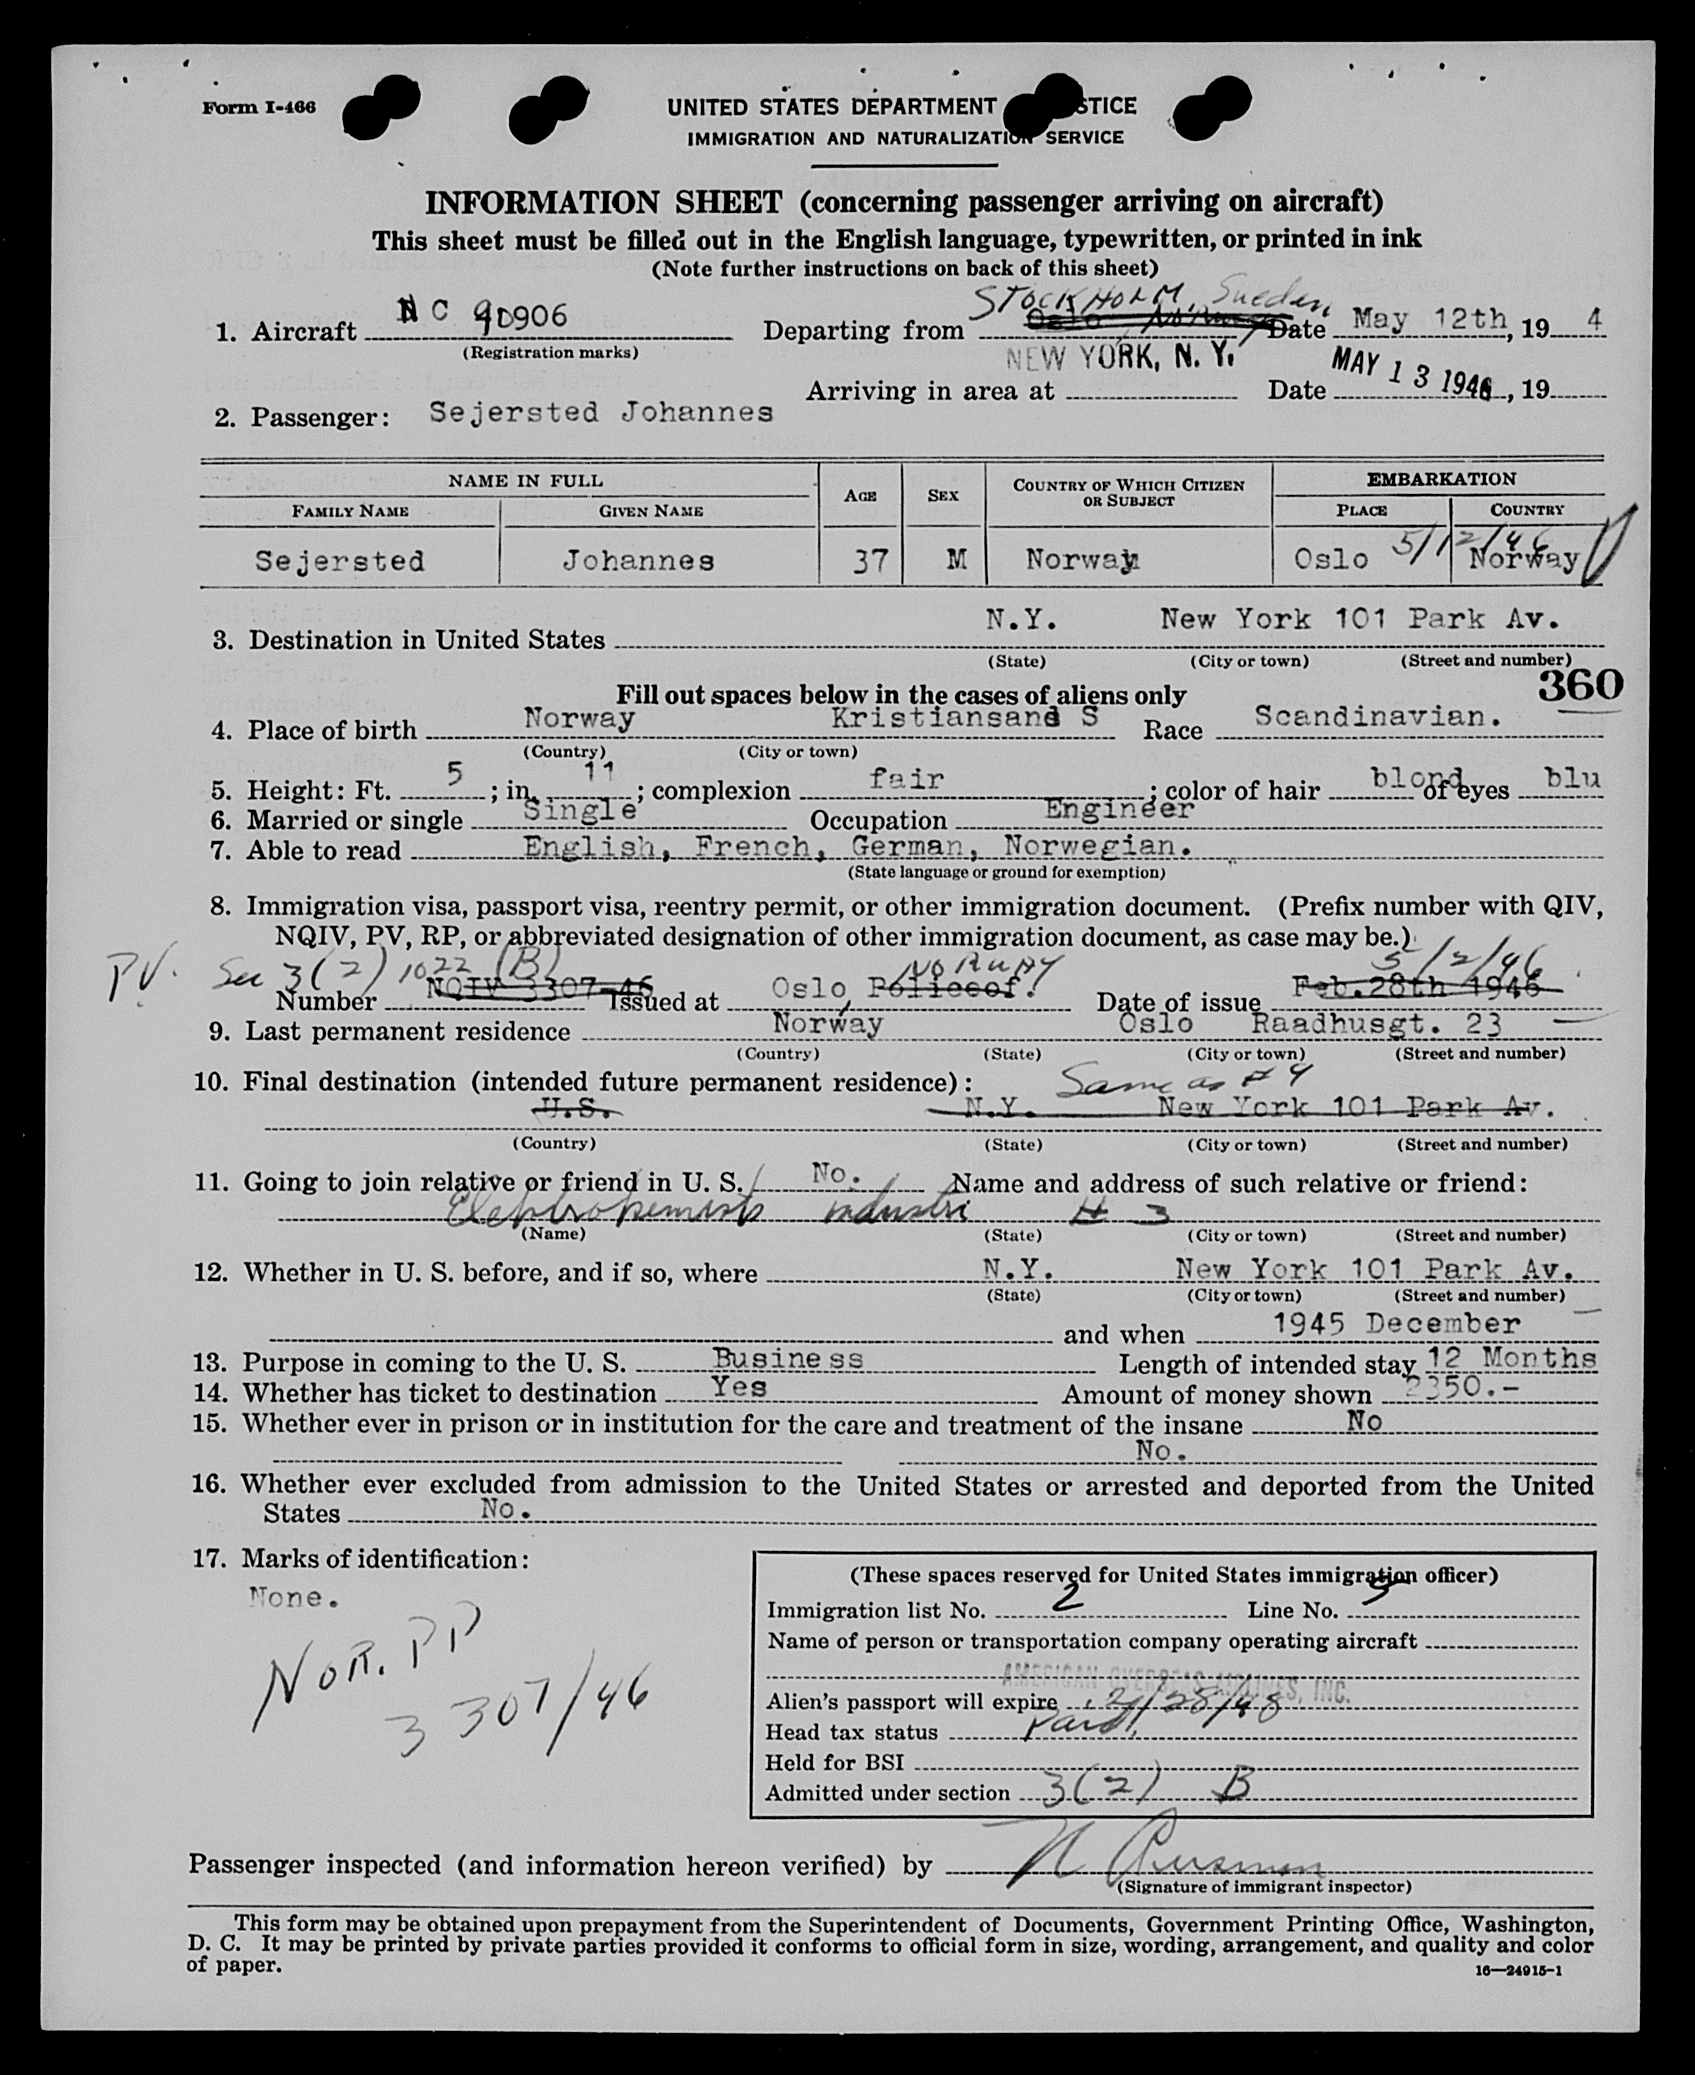 Form I-466
UNITED STATES DEPARTMENT STICE
IMMIGRATION AND NATURALIZATION SERVICE
INFORMATION SHEET (concerning passenger arriving on aircraft)
This sheet must be filled out in the English language, typewritten, or printed in ink
(Note further instructions on back of this sheet)
STOCKHOLM, Sweden
1. Aircraft N C 90906 Departing from Oslo, Norway Date May 12th, 19 4
(Registration marks)
NEW YORK, N. Y. MAY 13 1946
Arriving in area at Date , 19
2. Passenger: Sejersted Johannes
NAME IN FULL AGE SEX COUNTRY OF WHICH CITIZEN OR SUBJECT EMBARKATION
FAMILY NAME GIVEN NAME PLACE COUNTRY
5/12/46
Sejersted Johannes 37 M Norway Oslo Norway
3. Destination in United States N.Y. New York 101 Park Av.
(State) (City or town) (Street and number)
360
Fill out spaces below in the cases of aliens only
4. Place of birth Norway Kristiansand S Race Scandinavian.
(Country) (City or town)
5. Height: Ft. 5 ; in. 11 ; complexion fair ; color of hair blond of eyes blu
6. Married or single Single Occupation Engineer
7. Able to read English, French, German, Norwegian.
(State language or ground for exemption)
8. Immigration visa, passport visa, reentry permit, or other immigration document. (Prefix number with QIV,
NQIV, PV, RP, or abbreviated designation of other immigration document, as case may be.)
PV. Sec 3(2) 1022 (B) NORWAY 5/2/46
Number NQIV 3307-46 Issued at Oslo, Policeof. Date of issue Feb.28th 1946
9. Last permanent residence Norway Oslo Raadhusgt. 23
(Country) (State) (City or town) (Street and number)
10. Final destination (intended future permanent residence): Same as # 4
U.S. N.Y. New York 101 Park Av.
(Country) (State) (City or town) (Street and number)
11. Going to join relative or friend in U. S. No. Name and address of such relative or friend:
Elektrokemisk industri # 3
(Name) (State) (City or town) (Street and number)
12. Whether in U. S. before, and if so, where N.Y. New York 101 Park Av.
(State) (City or town) (Street and number)
and when 1945 December
13. Purpose in coming to the U. S. Business Length of intended stay 12 Months
14. Whether has ticket to destination Yes Amount of money shown 2350.-
15. Whether ever in prison or in institution for the care and treatment of the insane No
No.
16. Whether ever excluded from admission to the United States or arrested and deported from the United
States No.
17. Marks of identification:
None.
NOR. PP
3307/46
(These spaces reserved for United States immigration officer)
Immigration list No. 2 Line No. 5
Name of person or transportation company operating aircraft
AMERICAN OVERSEAS AIRLINES, INC.
Alien's passport will expire 2/28/48
Head tax status Paid
Held for BSI
Admitted under section 3(2) B
Passenger inspected (and information hereon verified) by
(Signature of immigrant inspector)
This form may be obtained upon prepayment from the Superintendent of Documents, Government Printing Office, Washington,
D. C. It may be printed by private parties provided it conforms to official form in size, wording, arrangement, and quality and color
of paper.
16—24915-1